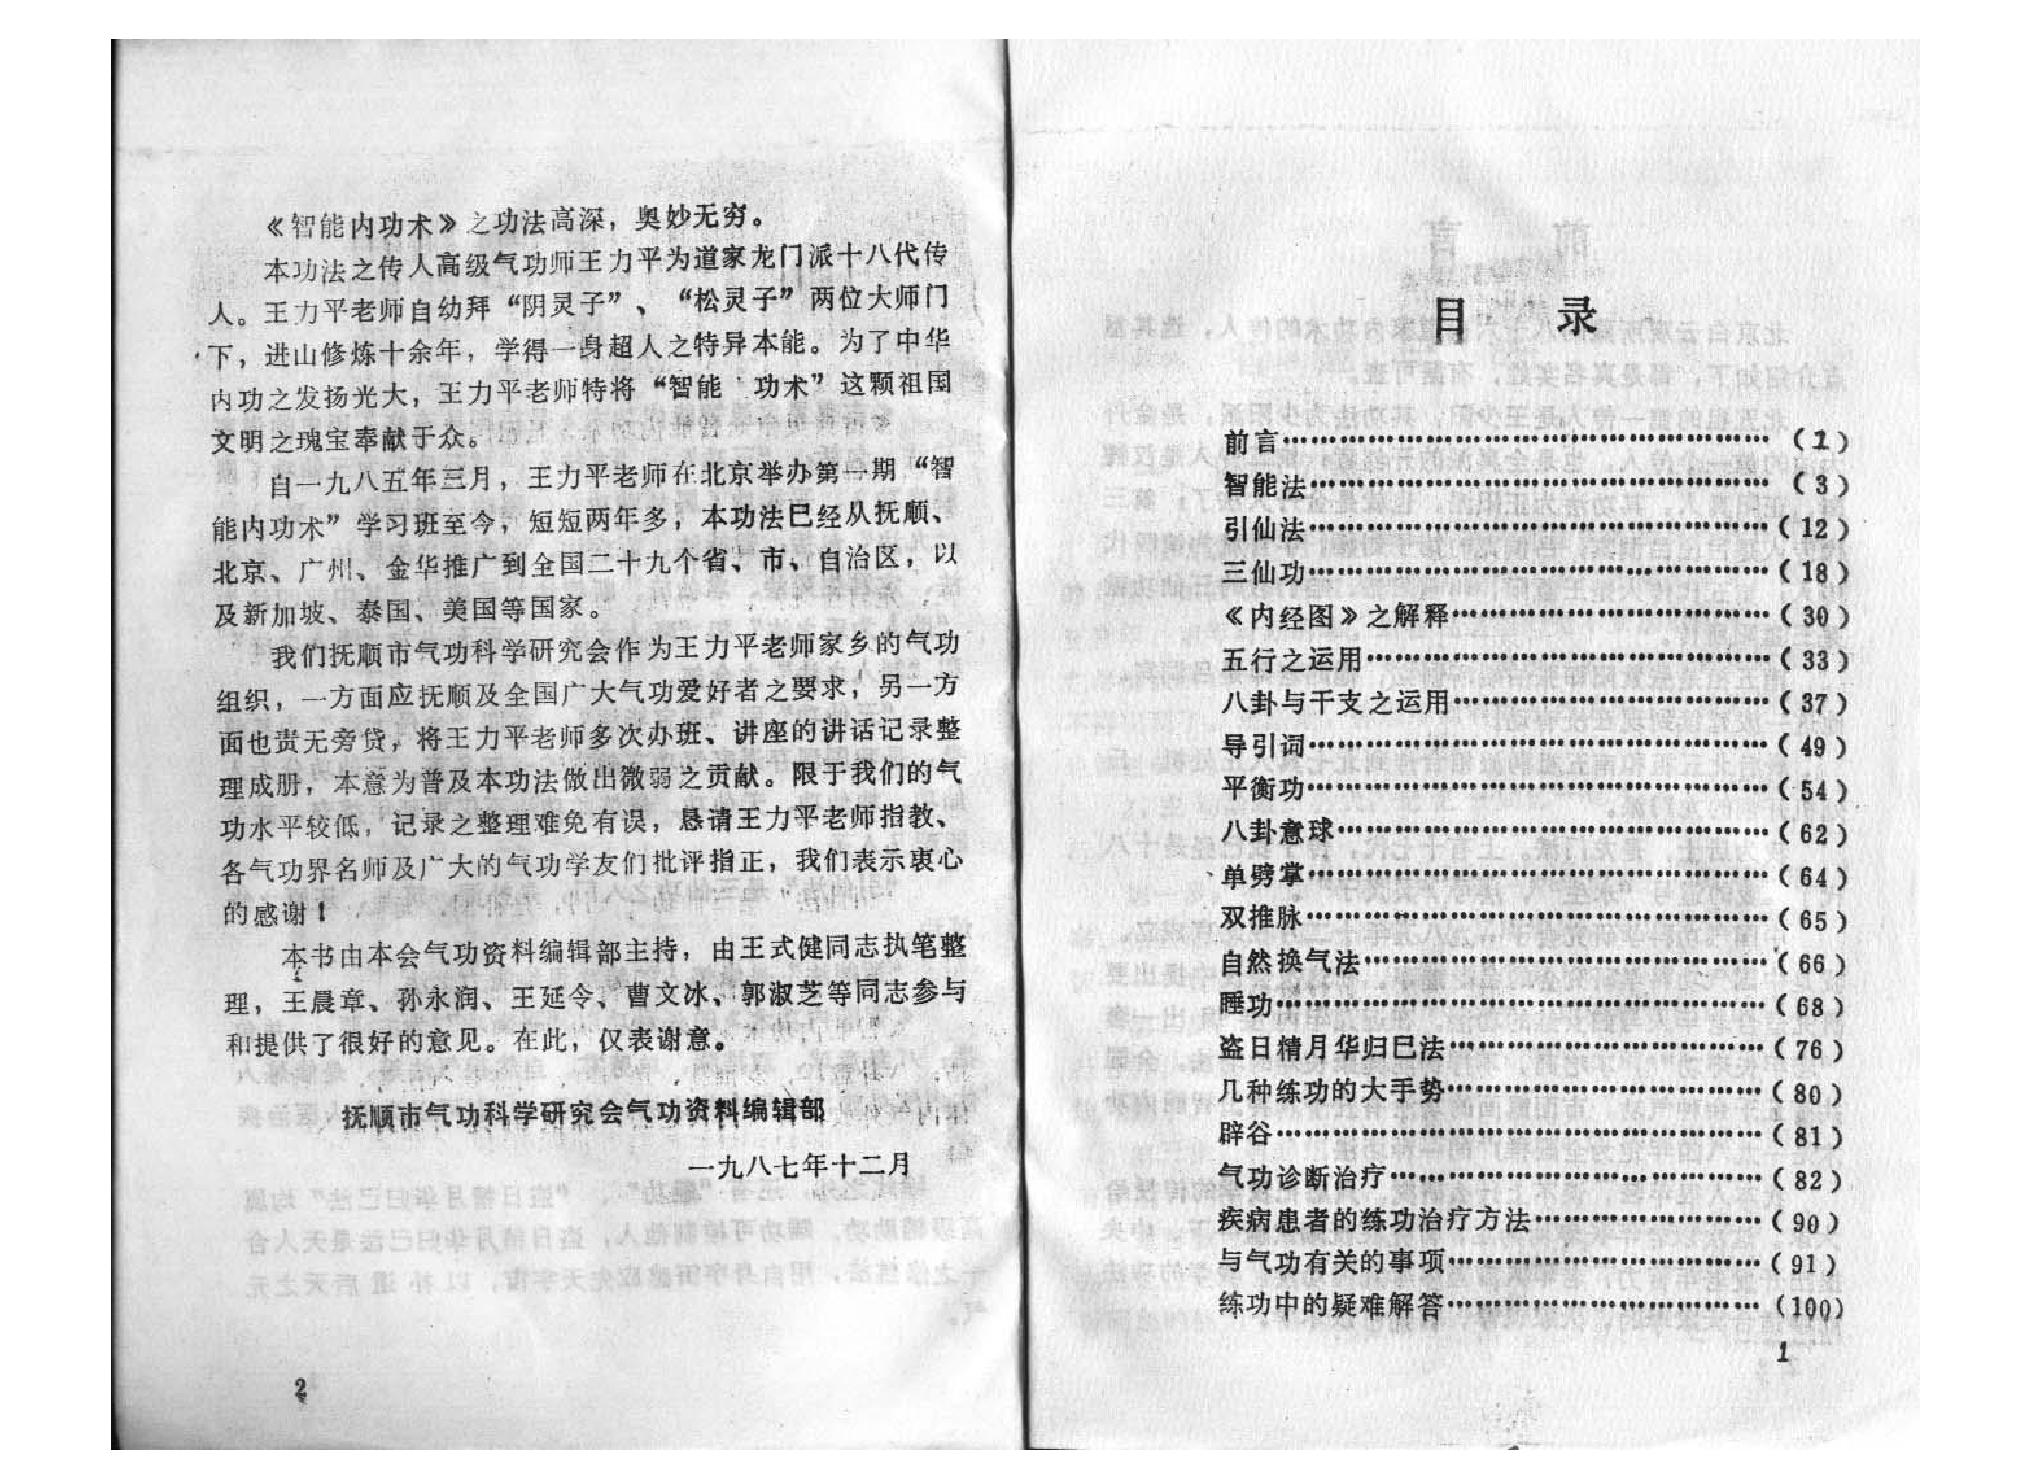 《智能内功术》之功法高深，奥妙无穷。
本功法之传人高级气功师王力平为道家龙门派十八代传
人。王力平老师自幼拜“阴灵子”、“松灵子”两位大师门
下，进山修炼十余年，学得一身超人之特异本能。为了中华
内功之发扬光大，王力平老师特将“智能 功术”这颗祖国
文明之瑰宝奉献于众。
自一九八五年三月，王力平老师在北京举办第一期“智
能内功术”学习班至今，短短两年多，本功法已经从抚顺、
北京、广州、金华推广到全国二十九个省、市、自治区，以
及新加坡、泰国、美国等国家。
我们抚顺市气功科学研究会作为王力平老师家乡的气功
组织，一方面应抚顺及全国广大气功爱好者之要求，另一方
面也责无旁贷，将王力平老师多次办班、讲座的讲话记录整
理成册，本意为普及本功法做出微弱之贡献。限于我们的气
功水平较低，记录之整理难免有误，恳请王力平老师指教、
各气功界名师及广大的气功学友们批评指正，我们表示衷心
的感谢！
本书由本会气功资料编辑部主持，由王式健同志执笔整
理，王晨章、孙永润、王延令、曹文冰、郭淑芝等同志参与
和提供了很好的意见。在此，仅表谢意。
抚顺市气功科学研究会气功资料编辑部
一九八七年十二月
2
目 录
前言……………………………………………（1）
智能法…………………………………………（3）
引仙法…………………………………………（12）
三仙功…………………………………………（18）
《内经图》之解释……………………………（30）
五行之运用……………………………………（33）
八卦与干支之运用……………………………（37）
导引词…………………………………………（49）
平衡功…………………………………………（54）
八卦意球………………………………………（62）
单劈掌…………………………………………（64）
双推脉…………………………………………（65）
自然换气法……………………………………（66）
睡功……………………………………………（68）
盗日精月华归巳法……………………………（76）
几种练功的大手势……………………………（80）
辟谷……………………………………………（81）
气功诊断治疗…………………………………（82）
疾病患者的练功治疗方法……………………（90）
与气功有关的事项……………………………（91）
练功中的疑难解答……………………………（100）
1